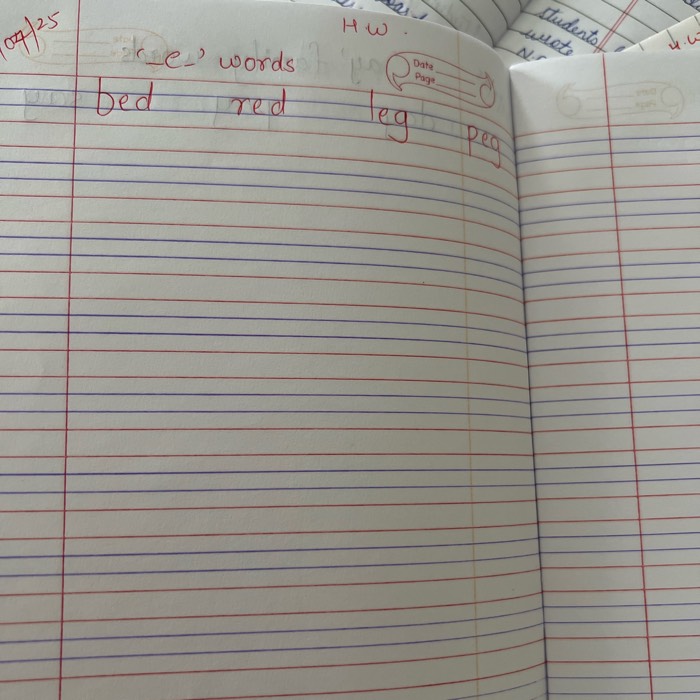 04/25
H W.
'-e-' words
Date
Page
bed red leg peg
students
wrote
H.W